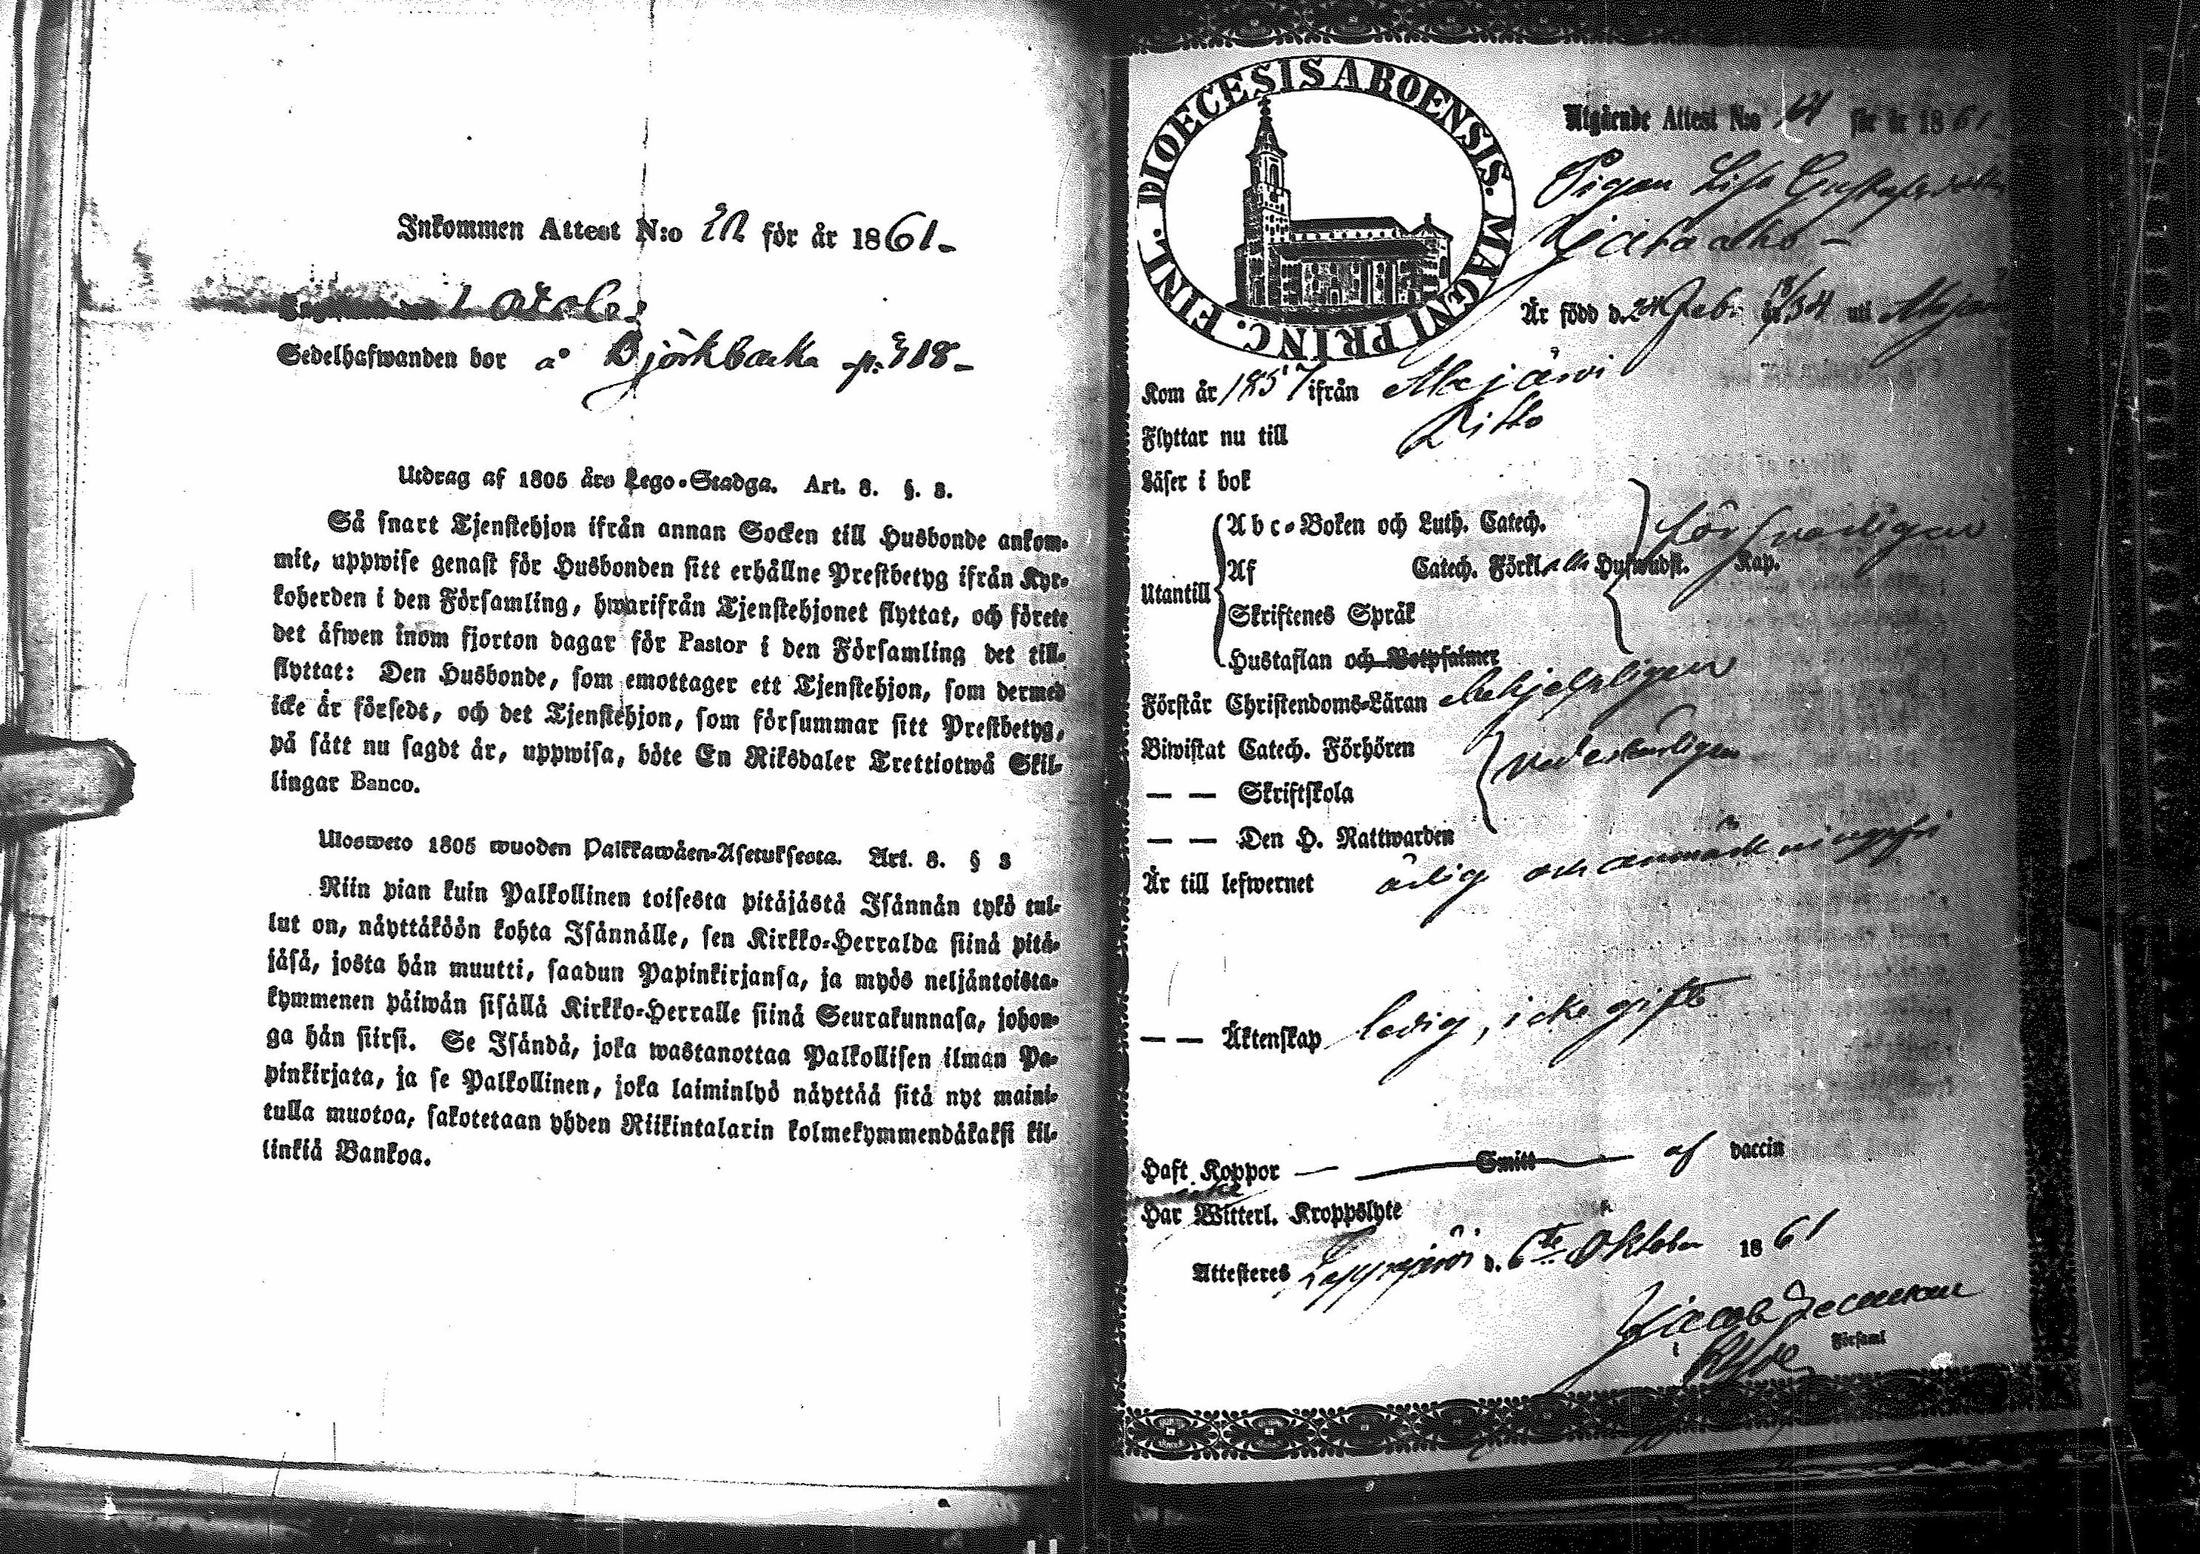 Inkommen Attest N:o för år 1861-
Sedelhafwanden bor å Björkbacka p: 318-
Utdrag af 1805 års Lego-Stadga. Art. 8. §. 3.
Så snart Tjenstehjon ifrån annan Socken till Husbonde ankom-
mit, uppwise genast för Husbonden sitt erhållne Prestbetyg ifrån Kyr-
koherden i den Församling, hwarifrån Tjenstehjonet flyttat, och förete
det äfwen inom fjorton dagar för Pastor i den Församling det till-
flyttat: Den Husbonde, som emottager ett Tjenstehjon, som dermed
icke är försedt, och det Tjenstehjon, som försummar sitt Prestbetyg,
på sätt nu sagdt är, uppwisa, böte En Riksdaler Trettiotwå Skil-
lingar Banco.
Ulosweto 1805 wuoden Palkkawäen-Asetuksesta. Art. 8. § 3
Niin pian kuin Palkollinen toisesta pitäjästä Isännän tykö tul-
lut on, näyttäköön kohta Isännälle, sen Kirkko-Herralda siinä pitä-
jäsä, josta hän muutti, saadun Papinkirjansa, ja myös neljäntoista-
kymmenen päiwän sisällä Kirkko-Herralle siinä Seurakunnasa, johon-
ga hän siirsi. Se Isändä, joka wastanottaa Palkollisen ilman Pa-
pinkirjata, ja se Palkollinen, joka laiminlyö näyttää sitä nyt maini-
tulla muotoa, sakotetaan yhden Riikintalarin kolmekymmendäkaksi kil-
linkiä Bankoa.
DIOECESIS ABOENSIS. MAGNI PRINC. FINL.
Utgående Attest N:o för år 1861-
Pigan Lisa Gustafsdotter
Är född d. 24 Feb. år 18/34 uti
Kom år 1857 ifrån Alajärvi
Flyttar nu till Ditto
Läser i bok
Utantill
Abc-Boken och Luth. Catech. försvarligen
Af Catech. Förkl. Huswudst. Kap.
Skriftenes Språk
Hustaflan och Botpsalmer
Förstår Christendoms-Läran behjelpligen
Biwistat Catech. Förhören vederbörligen
— — Skriftskola
— — Den H. Nattwarden
Är till lefwernet ärlig och anmärkningsfri
— — Äktenskap ledig, icke gift
Haft Koppor — Smitt af vaccin
icke
Har Witterl. Kroppslyte
Attesteres Lappajärvi d. 6te Oktober 1861
Jacob
i Församl